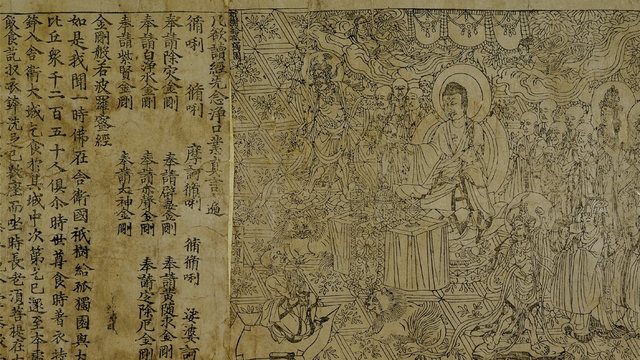 凡欲讀經先念淨口業真言一遍
脩唎 脩唎 摩訶脩唎 脩脩唎 娑婆訶
奉請除災金剛 奉請辟毒金剛 奉請黃隨求金剛
奉請白淨水金剛 奉請赤聲金剛 奉請定除厄金剛
奉請紫賢金剛 奉請大神金剛
金剛般若波羅蜜經
如是我聞一時佛在舍衛國祇樹給孤獨園與大
比丘衆千二百五十人俱尒時世尊食時著衣持
鉢入舍衛大城乞食於其城中次第乞已還至本處
飯食訖收衣鉢洗足已敷座而坐時長老須菩提在